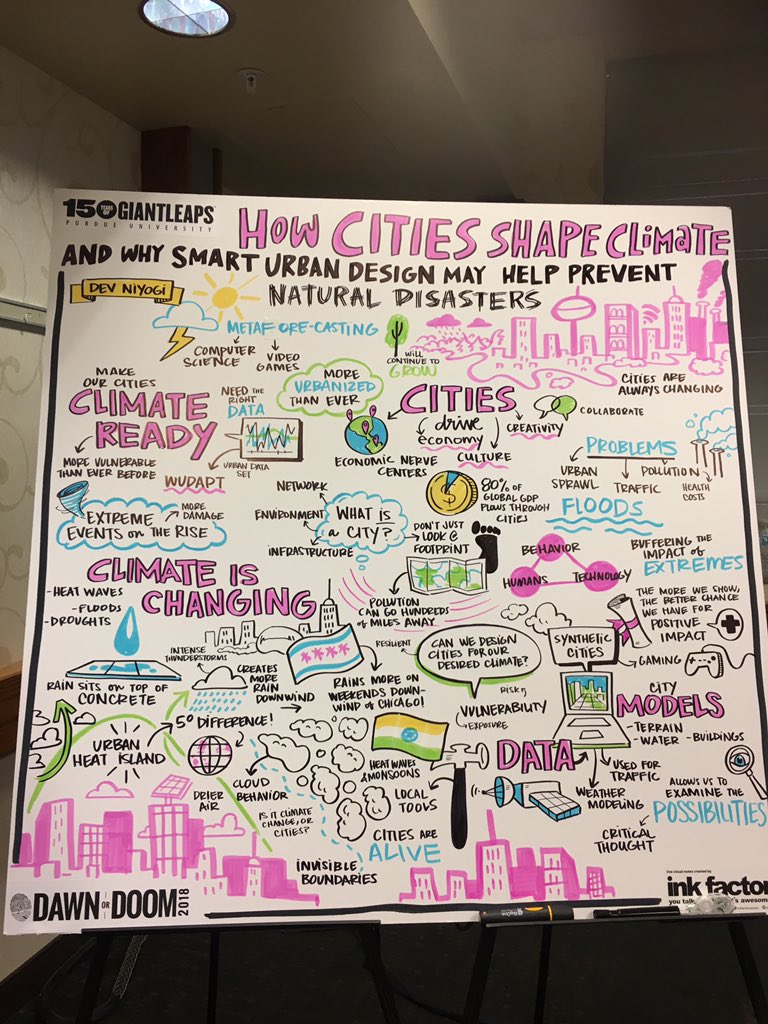 150 YEARS OF GIANTLEAPS
PURDUE UNIVERSITY
HOW CITIES SHAPE CLIMATE
AND WHY SMART URBAN DESIGN MAY HELP PREVENT
NATURAL DISASTERS
DEV NIYOGI
METAFORE-CASTING
COMPUTER
SCIENCE
VIDEO
GAMES
WILL
CONTINUE TO
GROW
CITIES ARE
ALWAYS CHANGING
MAKE
OUR CITIES
CLIMATE
READY
MORE VULNERABLE
THAN EVER BEFORE
NEED THE
RIGHT
DATA
URBAN DATA
SET
WUDAPT
MORE
URBANIZED
THAN EVER
CITIES
drive
economy
CULTURE
CREATIVITY
COLLABORATE
ECONOMIC NERVE
CENTERS
PROBLEMS
URBAN
SPRAWL
TRAFFIC
POLLUTION
HEALTH
COSTS
EXTREME
EVENTS ON THE RISE
MORE
DAMAGE
NETWORK
ENVIRONMENT
INFRASTRUCTURE
WHAT IS
a CITY?
DON'T JUST
LOOK @
FOOTPRINT
80% OF
GLOBAL GDP
FLOWS THROUGH
CITIES
FLOODS
BUFFERING THE
IMPACT of
EXTREMES
BEHAVIOR
HUMANS
TECHNOLOGY
CLIMATE IS
CHANGING
-HEAT WAVES
-FLOODS
-DROUGHTS
POLLUTION
CAN GO HUNDREDS
OF MILES AWAY
THE MORE WE SHOW,
THE BETTER CHANCE
WE HAVE FOR
POSITIVE
IMPACT
RAIN SITS ON TOP OF
CONCRETE
INTENSE
THUNDERSTORMS
CREATES
MORE
RAIN
DOWNWIND
RAINS MORE ON
WEEKENDS DOWN-
WIND OF CHICAGO!
RESILIENT
CAN WE DESIGN
CITIES FOR OUR
DESIRED CLIMATE?
RISK
VULNERABILITY
EXPOSURE
SYNTHETIC
CITIES
GAMING
CITY
MODELS
-TERRAIN
-WATER -BUILDINGS
URBAN
HEAT ISLAND
5° DIFFERENCE!
DRIER
AIR
CLOUD
BEHAVIOR
IS IT CLIMATE
CHANGE, OR
CITIES?
HEAT WAVES
& MONSOONS
LOCAL
TOOLS
CITIES ARE
ALIVE
INVISIBLE
BOUNDARIES
DATA
USED FOR
TRAFFIC
WEATHER
MODELING
CRITICAL
THOUGHT
ALLOWS US TO
EXAMINE THE
POSSIBILITIES
DAWN OR DOOM 2018
live visual notes created by
ink factor
you talk